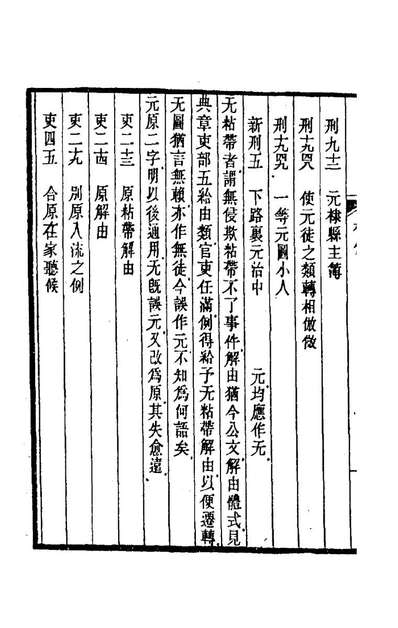 刑九十三　元棣縣主簿
刑十九咒　使元徒之類轉相倣傚
刑十九咒　一等元圖小人
新刑五　下路裏元治中　元均應作无
无粘帶者謂無侵欺粘帶不了事件解由猶今公文解由體式見
典章吏部五給由類官吏任滿例得給予无粘帶解由以便遷轉
无圖猶言無賴亦作無徒今誤作元不知爲何語矣
元原二字明以後通用无旣誤元又改爲原其失愈遠
吏二十三　原粘帶解由
吏二十四　原解由
吏二十九　別原入流之例
吏四十五　合原在家聽候